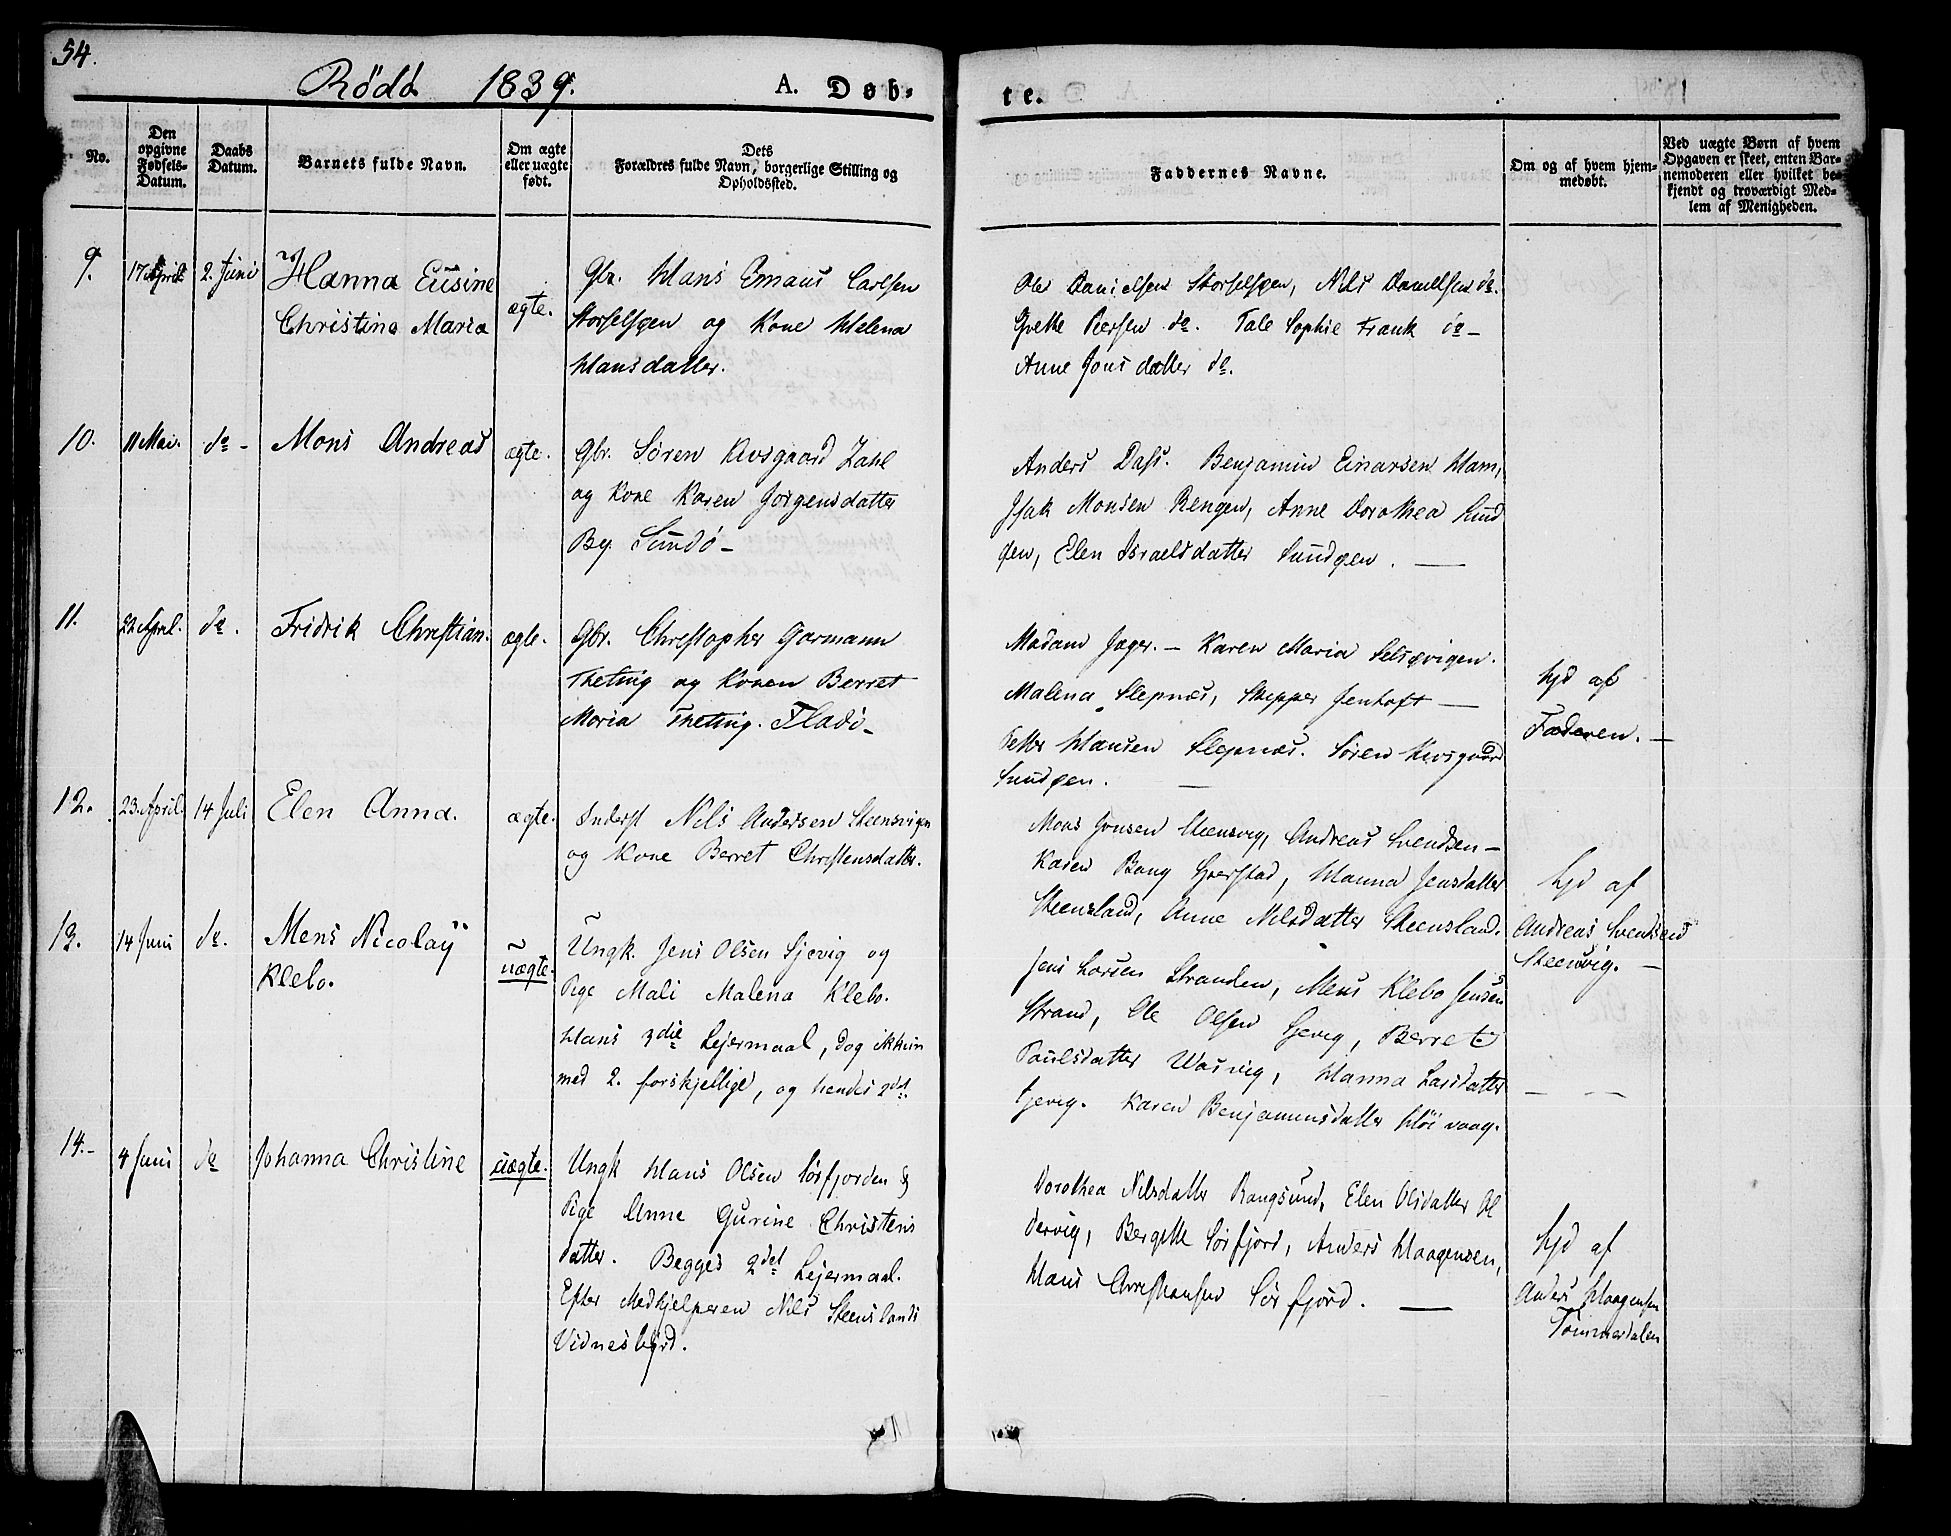 54.
Rödö 1839.
A. Døb-
te.
No.
Den opgivne Fødsels-Datum.
Daabs Datum.
Barnets fulde Navn.
Om ægte eller uægte født.
Dets Forældres fulde Navn, borgerlige Stilling og Opholdssted.
Faddernes Navne.
Om og af hvem hjem-medøbt.
Ved uægte Børn af hvem Opgaven er skeet, enten Bar-nemoderen eller hvilket be-kjendt og troværdigt Med-lem af Menigheden.
9.
17 April
2. Juni
Hanna Eusine
Christina Maria
ægte.
Gbr. Hans Emaus Carlsen
Storselsøen og Kone Helena
Hansdatter.
Ole Danielsen Storselsøen, Nils Danielsen do.
Grethe Peersen do. Tale Sophie Frank do –
Anne Jonsdatter do.
10.
11 Mai.
do –
Mons Andreas
ægte.
Gbr. Sören Kivsgaard Zahl
og Kone Karen Jörgensdatter
By. Sundö –
Anders Dass. Benjamin Einarsen Ham,
Isak Monsen Rengen, Anne Dorothea Sund
øen, Elen Israelsdatter Sundøen. —
11.
22 April.
do.
Fridrik Christian.
ægte.
Gbr. Christopher Garmann
Theting og Konen Berret
Maria Theting. Fladö –
Madam Jager. – Karen Maria Selsøvigen.
Malena Slepnæs, Skipper Jentoft —
Petter Hansen Slepnæs. Sören Kivsgaard
Sundøen. —
hjd af
Faderen. —
12.
23. April
14 Juli
Elen Anna.
ægte.
Inderst Nils Andersen Steensvigen
og Kone Berret Christensdatter.
Mons Jonsen Steensvig, Andreas Svendsen –
Karen Bang Gjerstad, Hanna Jensdatter
Steensland, Anne Nilsdatter Steensland.
hjd af
Andreas Svendsen
Steensvig. —
13.
14 Juni
do.
Mens Nicolaÿ
Klebo.
uægte.
Ungk. Jens Olsen Gjervig og
Pige Mali Malena Klebo.
Hans 3die Lejermaal, dog ikkun
med 2. forskjellige, og hendes 2det.
Jens Larsen Stranden, Mens Klebo Jensen
Strand, Ole Olsen Gjervig, Berret
Paulsdatter Wasvig, Hanna Larsdatter
Gjervig. Karen Benjaminsdatter Höivaag.
— — —
14. –
4 Juni
do
Johanna Christine
uægte.
Ungk Hans Olsen Sörfjorden &
Pige Anne Gurine Christens
datter. Begges 2det Lejermaal.
Efter Medhjelperen Nils Steenslands
Vidnesbyrd.
Dorothea Nilsdatter Rangsund, Elen Olsdatter Ol
dervig, Bergitte Sörfjord, Anders Haagensen,
Hans Christiansen Sörfjord. —
hjd af
Anders Haagensen
Tömmerdalen